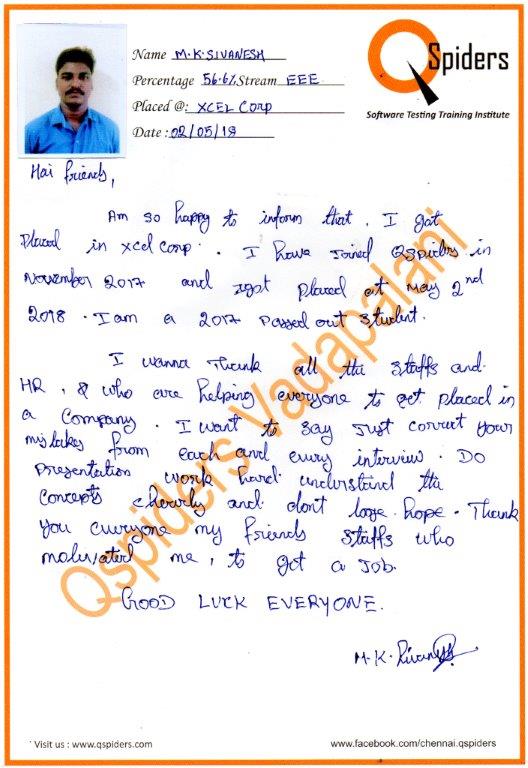 Name M.K.SIVANESH
Percentage 56.6% Stream EEE
Placed @: XCEL Corp
Date : 02/05/18
QSpiders
Software Testing Training Institute
Hai friends,
Am so happy to inform that, I got
Placed in xcel corp. I have Joined QSpiders in
November 2017 and igot placed at may 2nd
2018. I am a 2017 Passed out Student.
I wanna Thank all the Staffs and
HR, & who are helping everyone to get placed in
a Company. I want to say Just correct your
mistakes from each and every interview. DO
Presentation work hard understand the
Concepts clearly and dont loose hope. Thank
you everyone my friends Staffs who
motivated me, to got a Job.
GOOD LUCK EVERYONE.
M.K.Sivanesh
Qspiders Vadapalani
Visit us : www.qspiders.com
www.facebook.com/chennai.qspiders